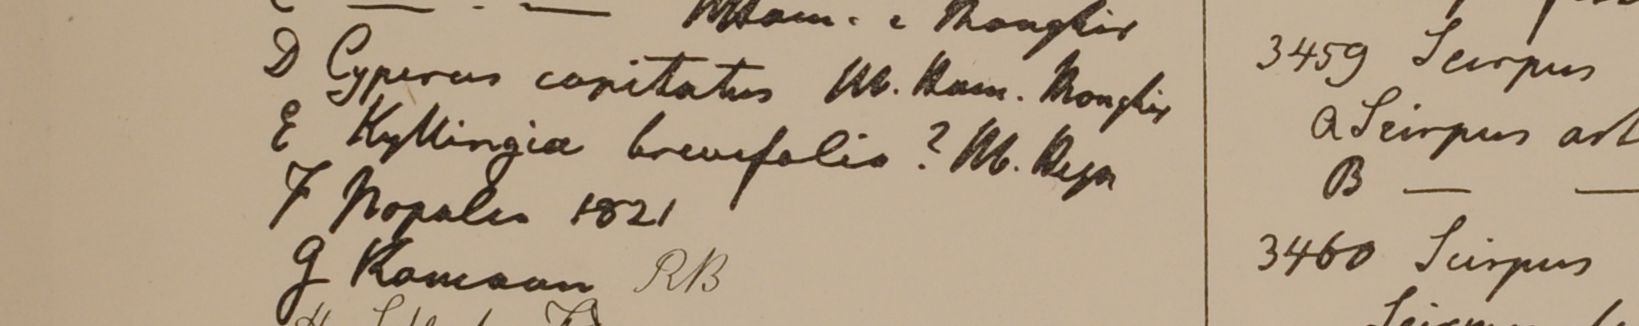 Ham. e Monghir
D Cyperus capitatus Hb. Ham. Monghir
E Kyllingia brevifolia ? Hb. Heyn
F Nopalia 1821
G Kamaon RB
3459 Scirpus
a Scirpus art
B — —
3460 Scirpus
Scirpus